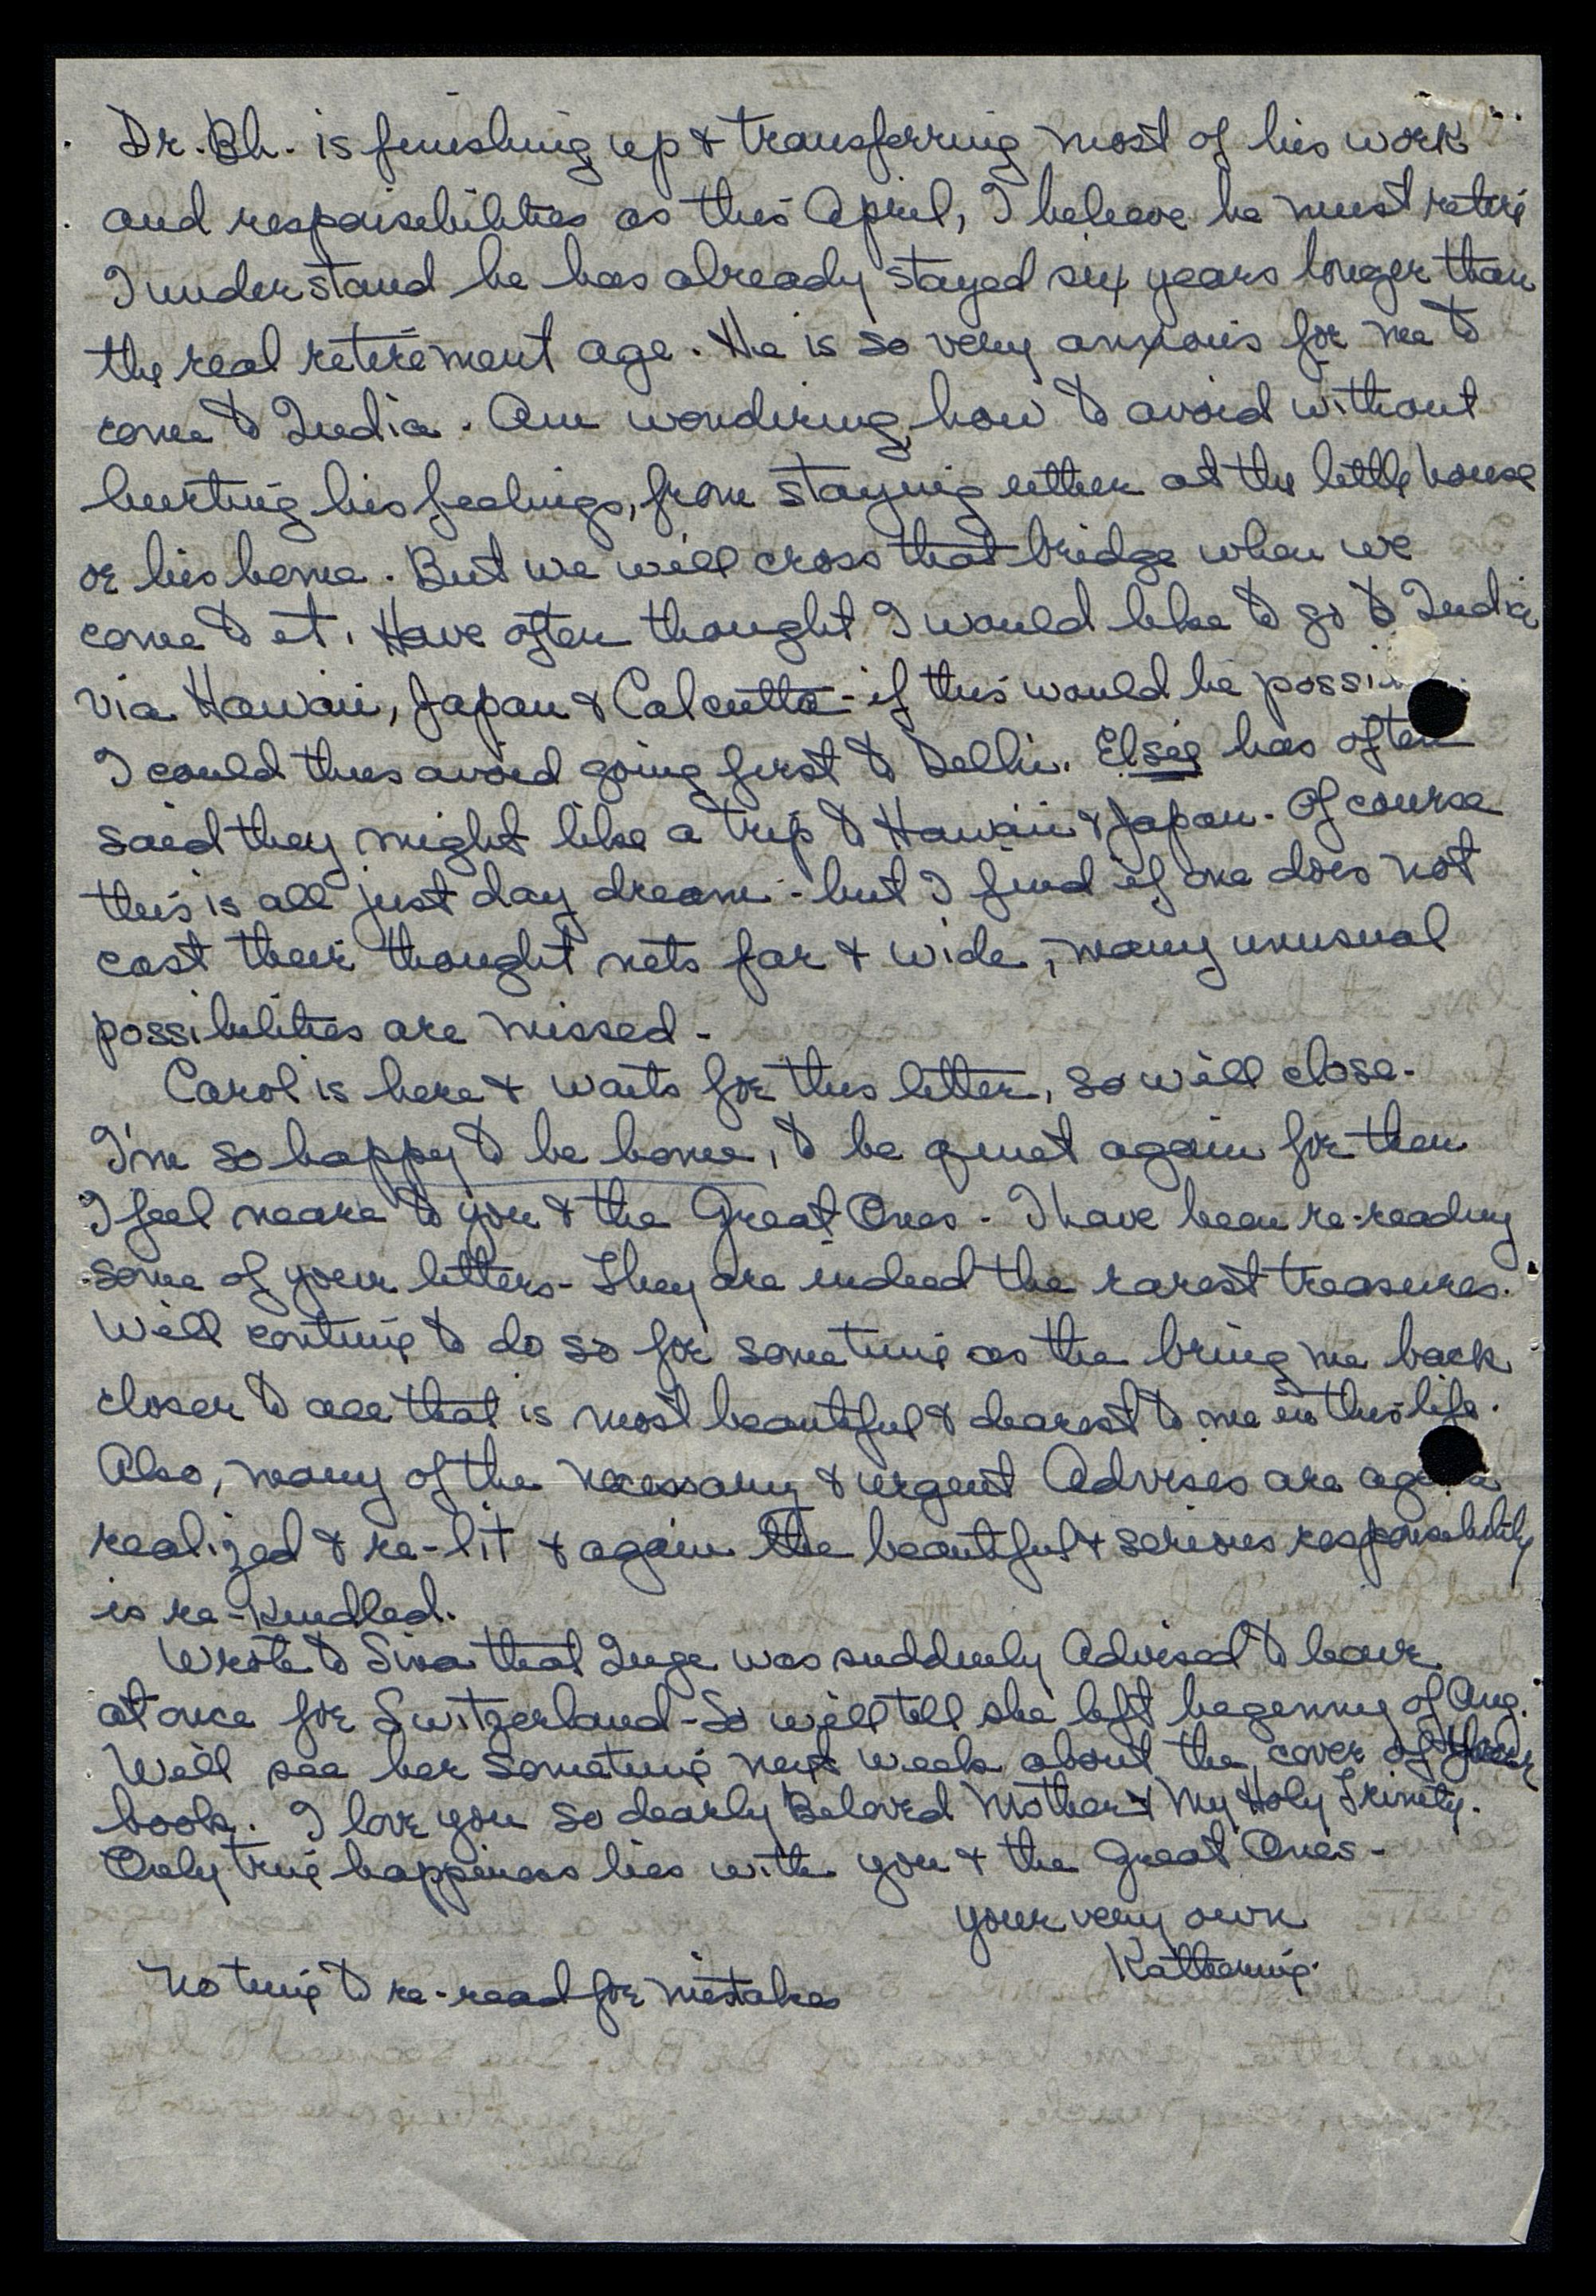 Dr. Bh. is finishing up & transferring most of his work
and responsibilities as this April, I believe he must retire
I understand he has already stayed six years longer than
the real retirement age. He is so very anxious for me to
come to India. Am wondering how to avoid without
hurting his feelings, from staying either at the little house
or his home. But we will cross that bridge when we
come to it. Have often thought I would like to go to India
via Hawaii, Japan & Calcutta - if this would be possi
I could thus avoid going first to Delhi. Elsie has often
said they might like a trip to Hawaii & Japan. Of course
this is all just day dream - but I find if one does not
cast their thought nets far & wide, many unusual
possibilities are missed -
Carol is here & waits for this letter, so will close.
I'm so happy to be home, to be quiet again for then
I feel neare to you & the Great Ones. I have been re-reading
some of your letters - They are indeed the rarest treasures.
Will continue to do so for sometime as the bring me back
closer to all that is most beautiful & dearest to me in this life.
Also, many of the necessary & urgent Advises are again
realized & re-lit & again the beautiful & serious responsibility
is re-kindled.
Wrote to Siva that Inge was suddenly Advised to leave
at once for Switzerland - So will tell she left beginning of Aug.
Will see her sometime next week about the cover of your
book. I love you so dearly Beloved Mother & My Holy Trinity.
Only true happiness lies with you & the Great Ones -
your very own
Katherine.
No time to re-read for mistakes